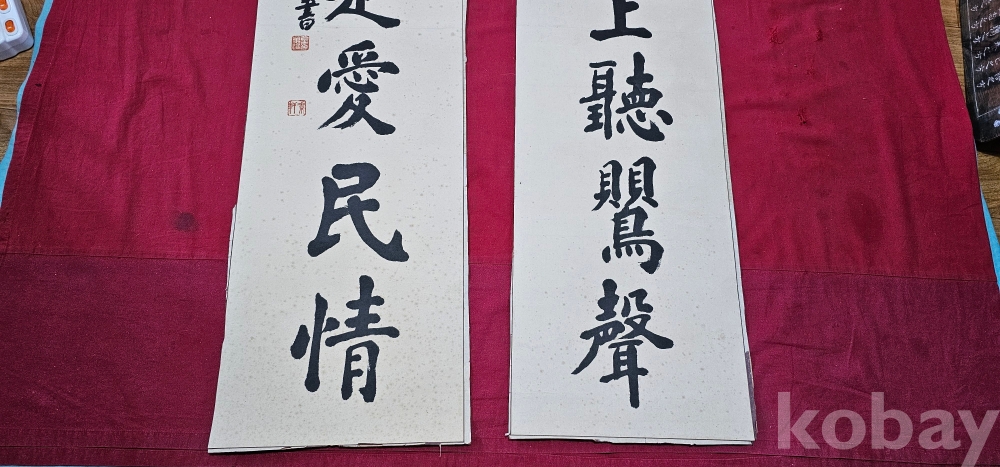 上聽鸎聲
愛民情
書
kobay